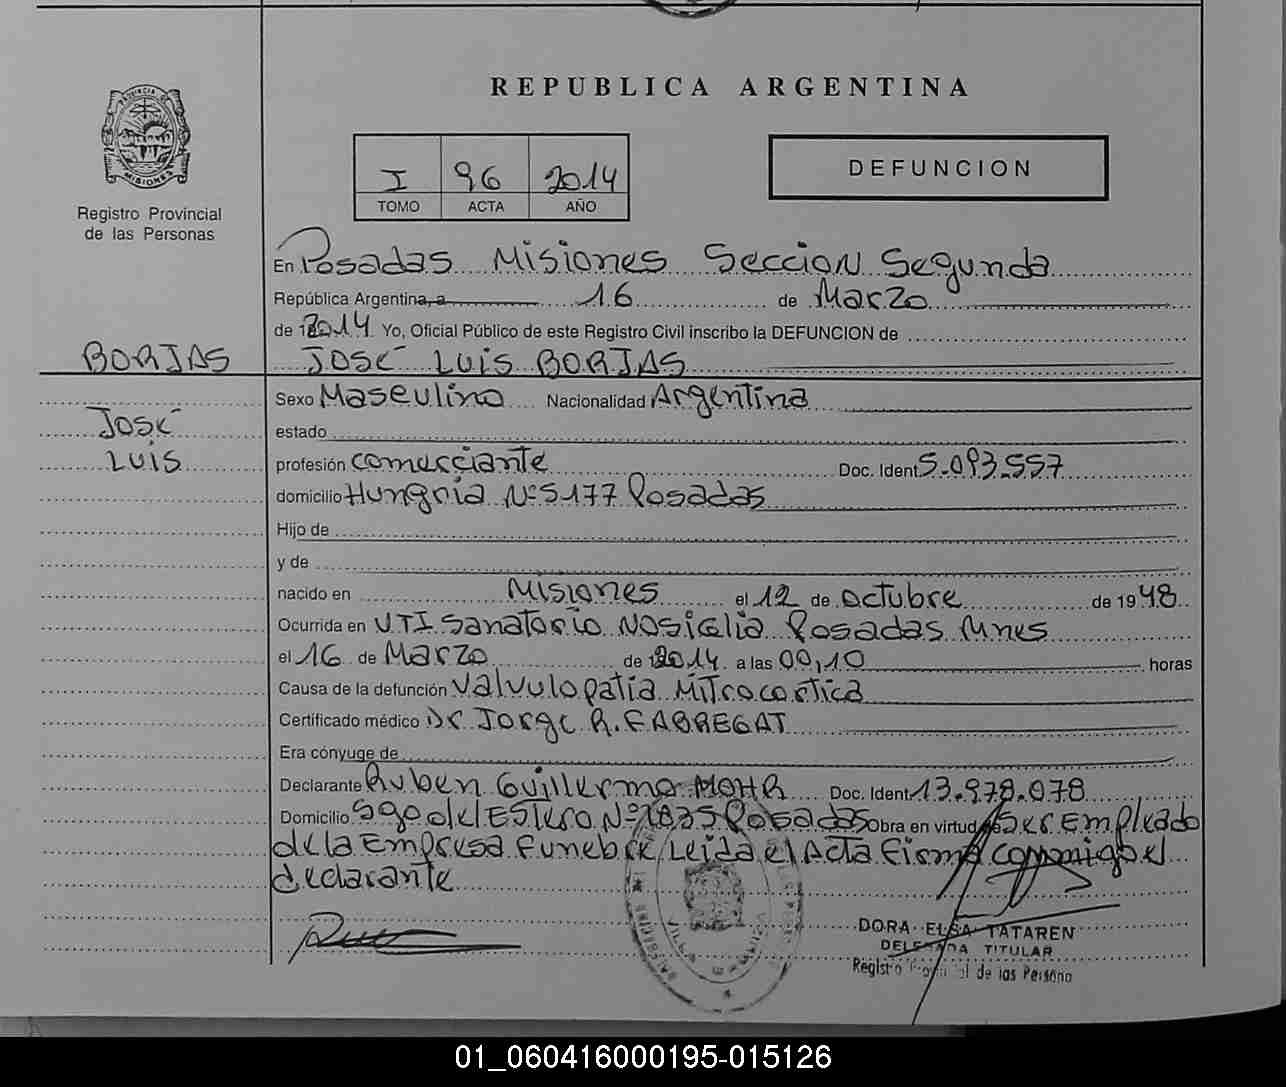 REPUBLICA ARGENTINA
PROVINCIA DE
MISIONES
Registro Provincial
de las Personas
I 96 2014
TOMO ACTA AÑO
DEFUNCION
En Posadas Misiones Seccion Segunda
República Argentina, a 16 de Marzo
de 2014 Yo, Oficial Público de este Registro Civil inscribo la DEFUNCION de
BORJAS JOSÉ LUIS BORJAS
JOSÉ
LUIS
Sexo Masculino Nacionalidad Argentina
estado
profesión comerciante Doc. Ident. 5.093.557
domicilio Hungria Nº 5177 Posadas
Hijo de
y de
nacido en Misiones el 12 de octubre de 1948
Ocurrida en UTI Sanatorio Nosiglia Posadas Mnes
el 16 de Marzo de 2014 a las 00,10 horas
Causa de la defunción Valvulopatia Mitroaortica
Certificado médico Dr. Jorge R. FABREGAT
Era cónyuge de
Declarante Ruben Guillermo MOHR Doc. Ident. 13.978.078
Domicilio Sgo del Estero Nº 1835 Posadas Obra en virtud de Ser Empleado
de la Empresa Funebre, Leida el Acta firma conmigo el
declarante
DORA ELSA TATAREN
DELEGADA TITULAR
Registro Provincial de las Persona
01_060416000195-015126